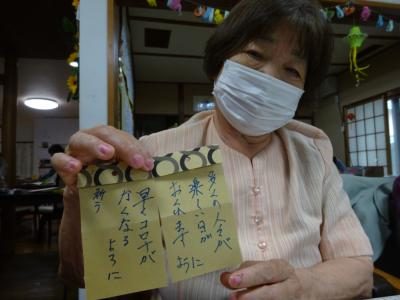 多くの人々が
楽しい日が
おくれます
ように
早くコロナが
なくなる
ように
祈る